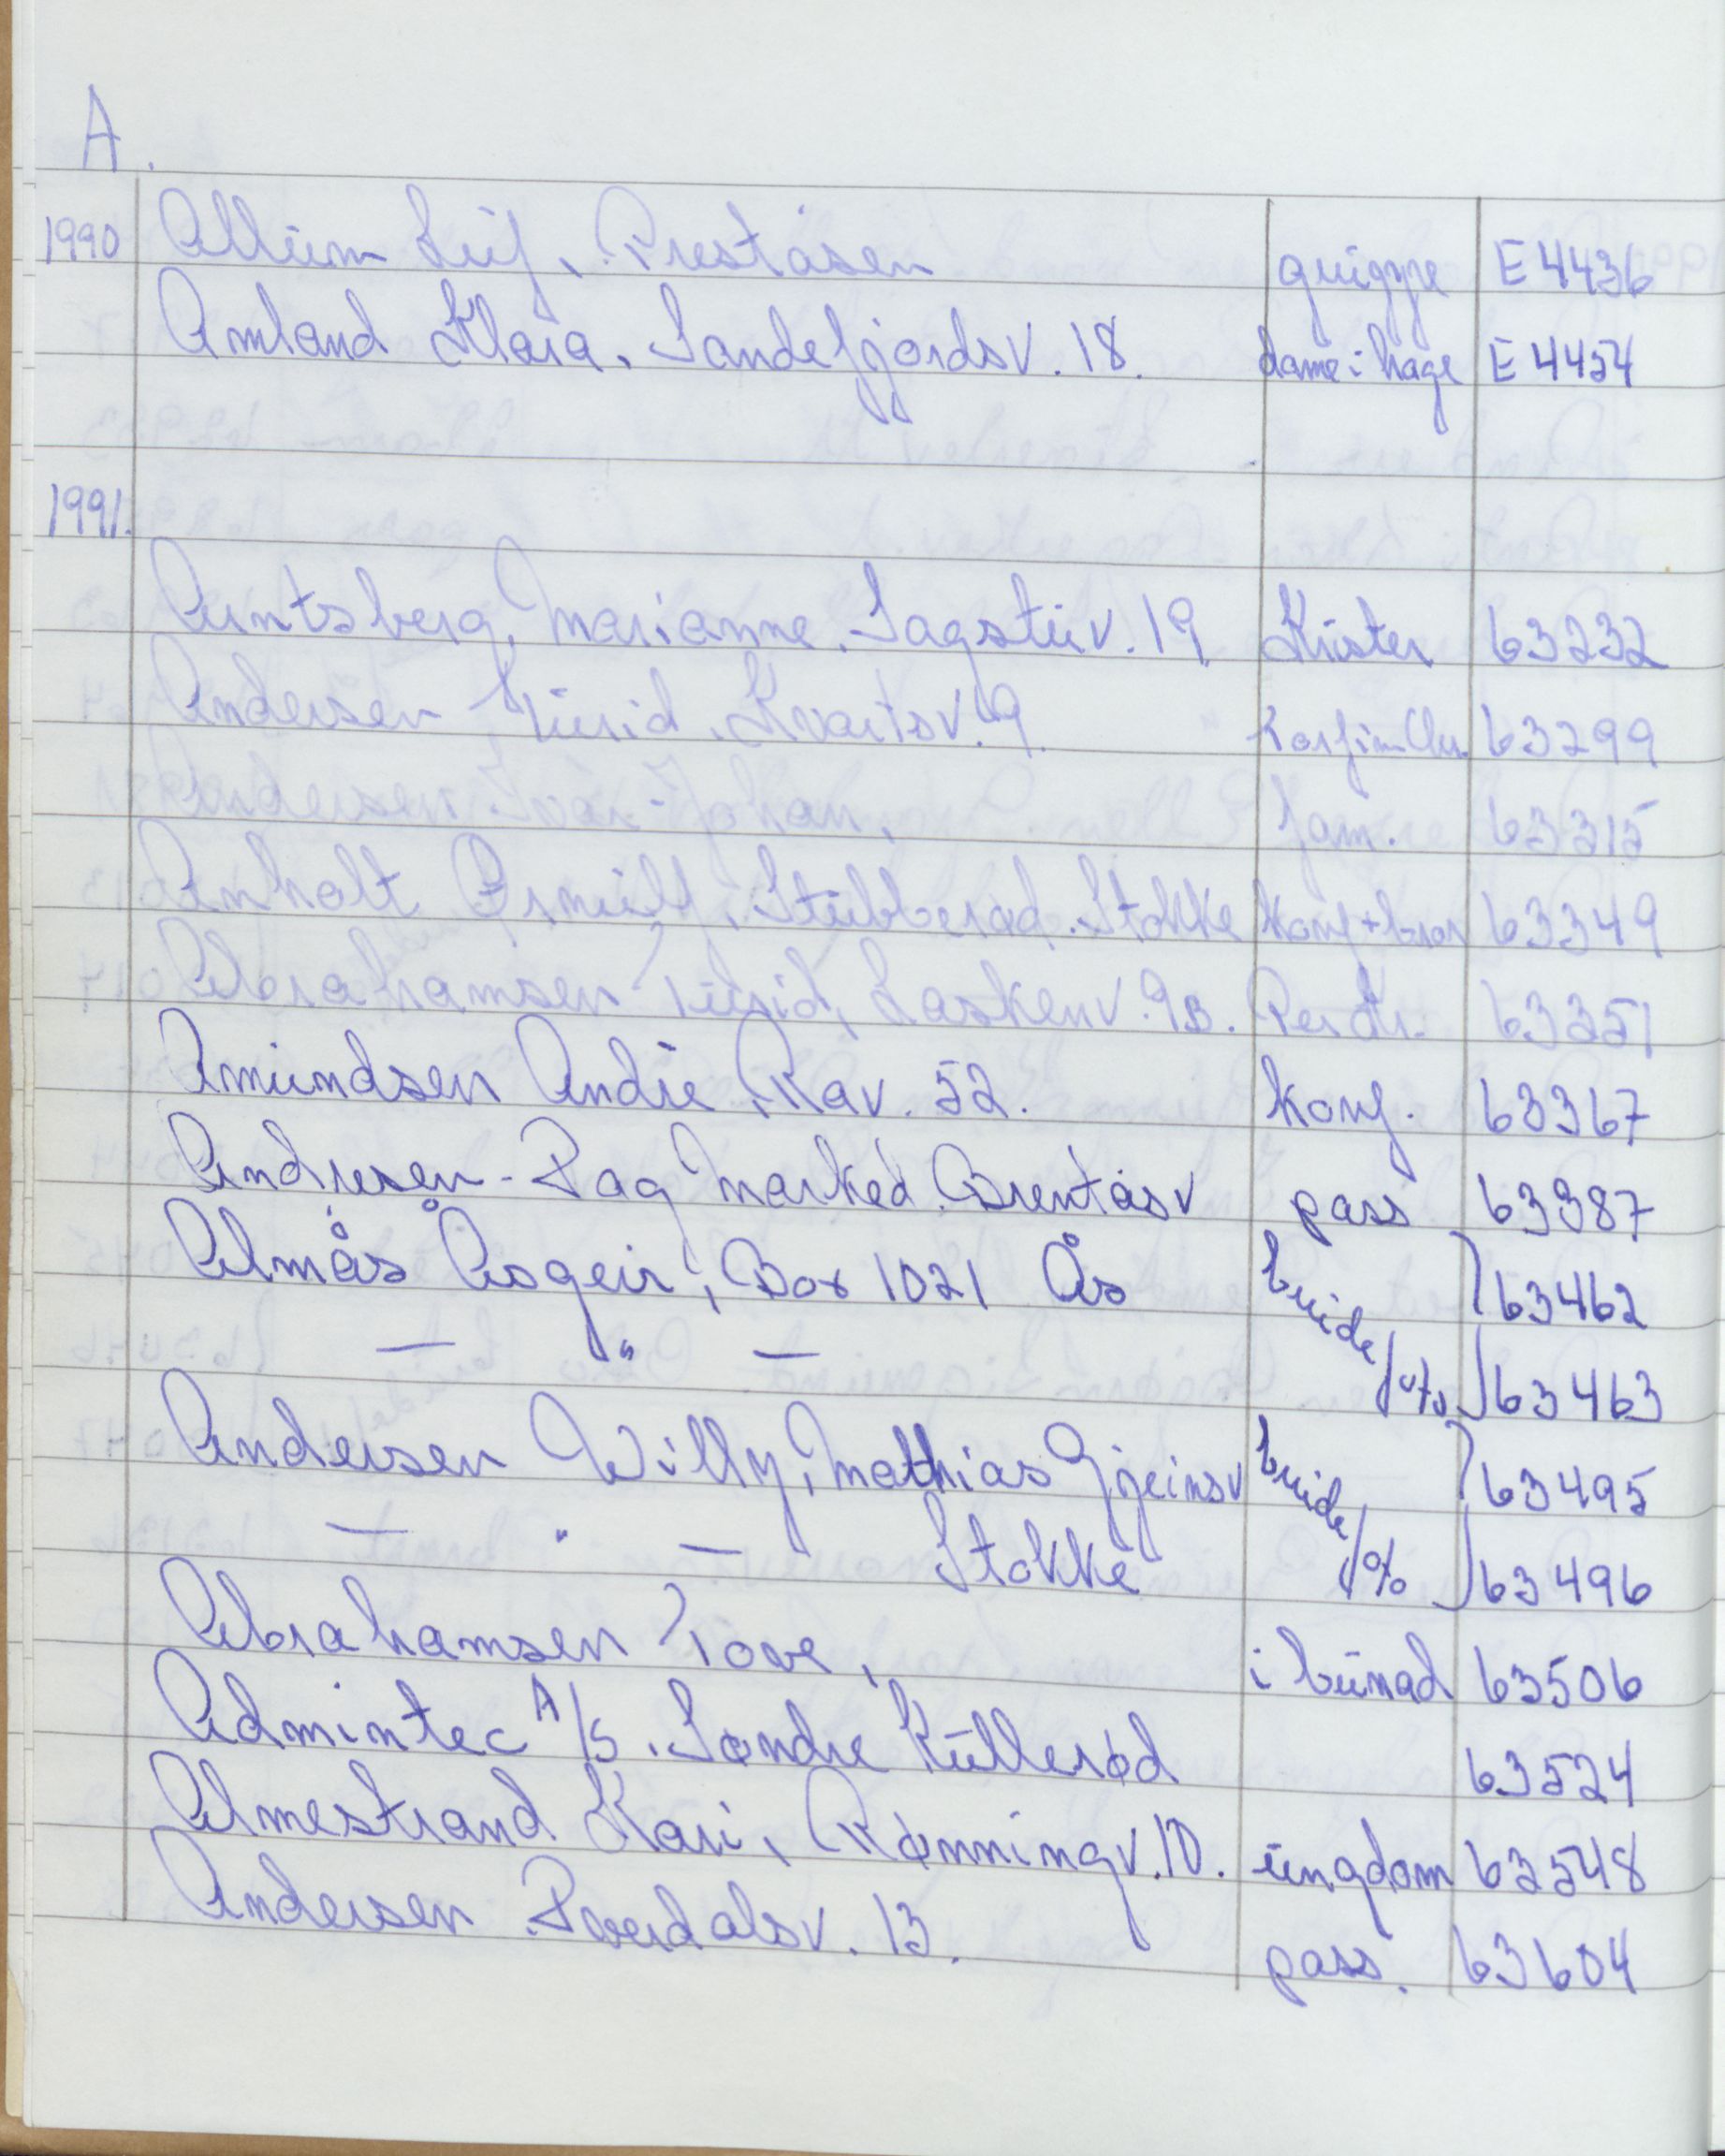 A.
1990 Allum Leif, Preståsen gruppe E4436
Amland Klara, Sandefjordsv. 18. dame i hage E4454
1991.
Arntsberg, Marianne, Sagstuv. 19 Krister 63232
Andersen Turid, Kvartsv. 9. 63299
Andersen Ivar-Johan, fam. 63315
Anholt Arnulf, Stubberød, Stokke konf + bror 63349
Abrahamsen Turid, Laskenv. 9B. 63351
Amundsen Andre, Rav. 52. konf. 63367
Andresen - Dag Marked. Brentåsv pass 63387
Almås Asgeir, Box 1021 Ås brude/ 63462
— " — 63463
Andersen Willy, Mathias Gjeinsv brude/ 63495
— " — Stokke 63496
Abrahamsen Tove, i bunad 63506
Admintec A/S. Søndre Kullerød 63524
Almestrand Kari, Rønningv. 10. ungdom 63548
Andersen Dverdalsv. 13. pass. 63604